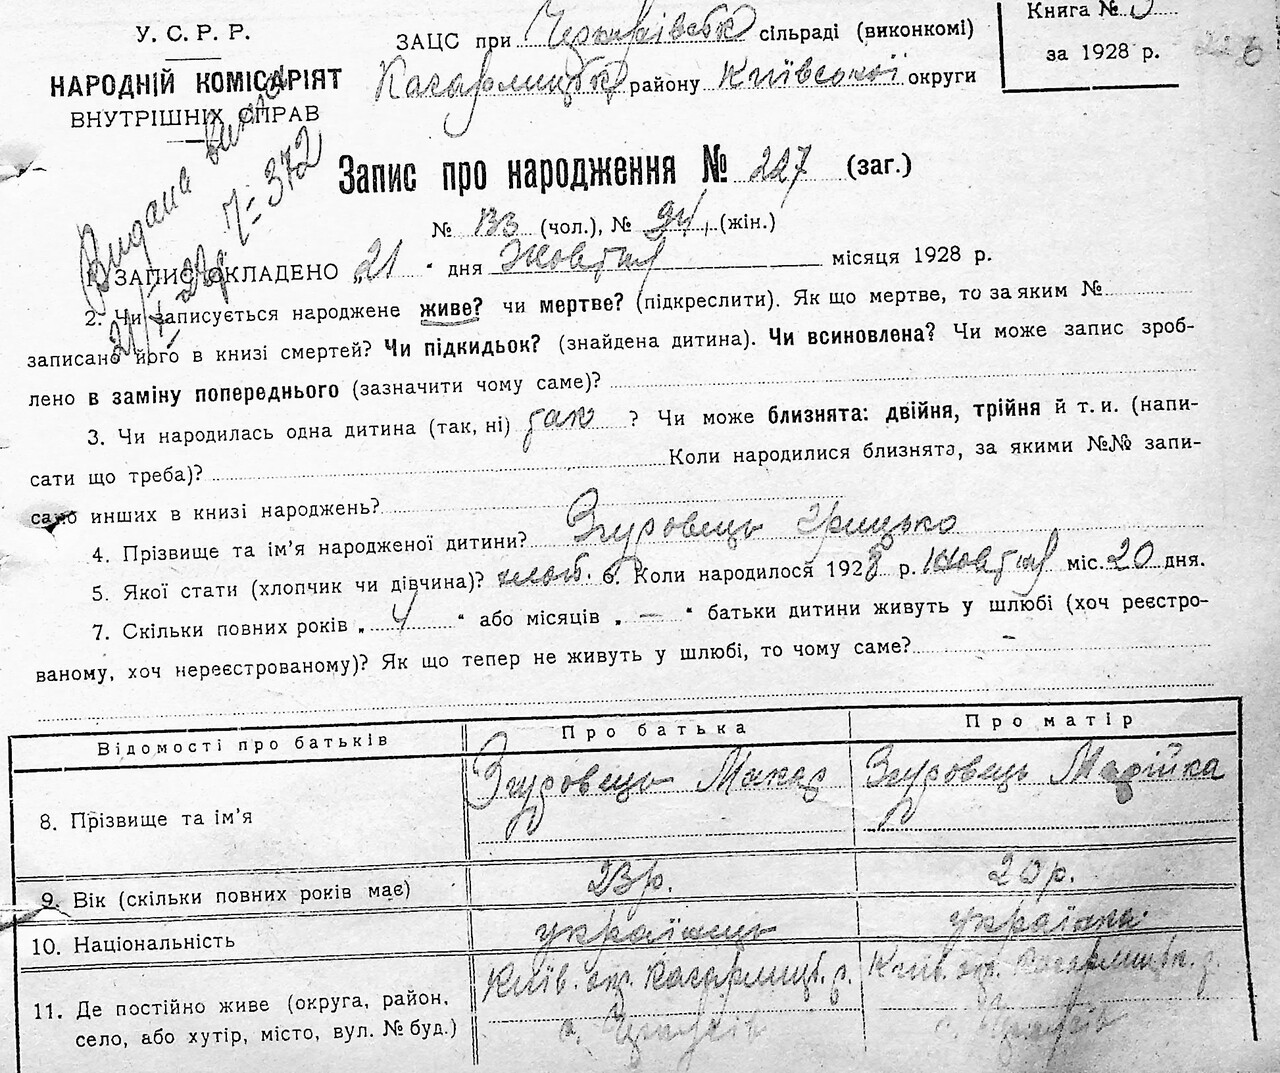 У. С. Р. Р.
НАРОДНІЙ КОМІСАРІЯТ
ВНУТРІШНІХ СПРАВ
ЗАЦС при сільраді (виконкомі)
Кагарлицьк району Київської округи
Книга №
за 1928 р.
226
Видана
7-372
Запис про народження № 227 (заг.)
№ 133 (чол.), № 94 (жін.)
1. ЗАПИС СКЛАДЕНО „21 “ дня Жовтня місяця 1928 р.
2. Чи записується народжене живе? чи мертве? (підкреслити). Як що мертве, то за яким №
записано його в книзі смертей? Чи підкидьок? (знайдена дитина). Чи всиновлена? Чи може запис зроб-
лено в заміну попереднього (зазначити чому саме)?
3. Чи народилась одна дитина (так, ні) так ? Чи може близнята: двійня, трійня й т. и. (напи-
сати що треба)? Коли народилися близнята, за якими №№ запи-
сано инших в книзі народжень?
4. Прізвище та ім’я народженої дитини? Згуровець Грицько
5. Якої стати (хлопчик чи дівчина)? хлоп. 6. Коли народилося 1928 р. Жовтня міс. 20 дня.
7. Скільки повних років „ 4 “ або місяців „ — “ батьки дитини живуть у шлюбі (хоч реєстро-
ваному, хоч нереєстрованому)? Як що тепер не живуть у шлюбі, то чому саме? –
Відомості про батьків Про батька Про матір
8. Прізвище та ім’я Згуровець Макар Згуровець Марійка
9. Вік (скільки повних років має) 23 р. 20 р.
10. Національність українець українка
11. Де постійно живе (округа, район, Київ. окр. Кагарлицьк. р. Київ. окр. Кагарлицьк. р.
село, або хутір, місто, вул. № буд.) с. с.